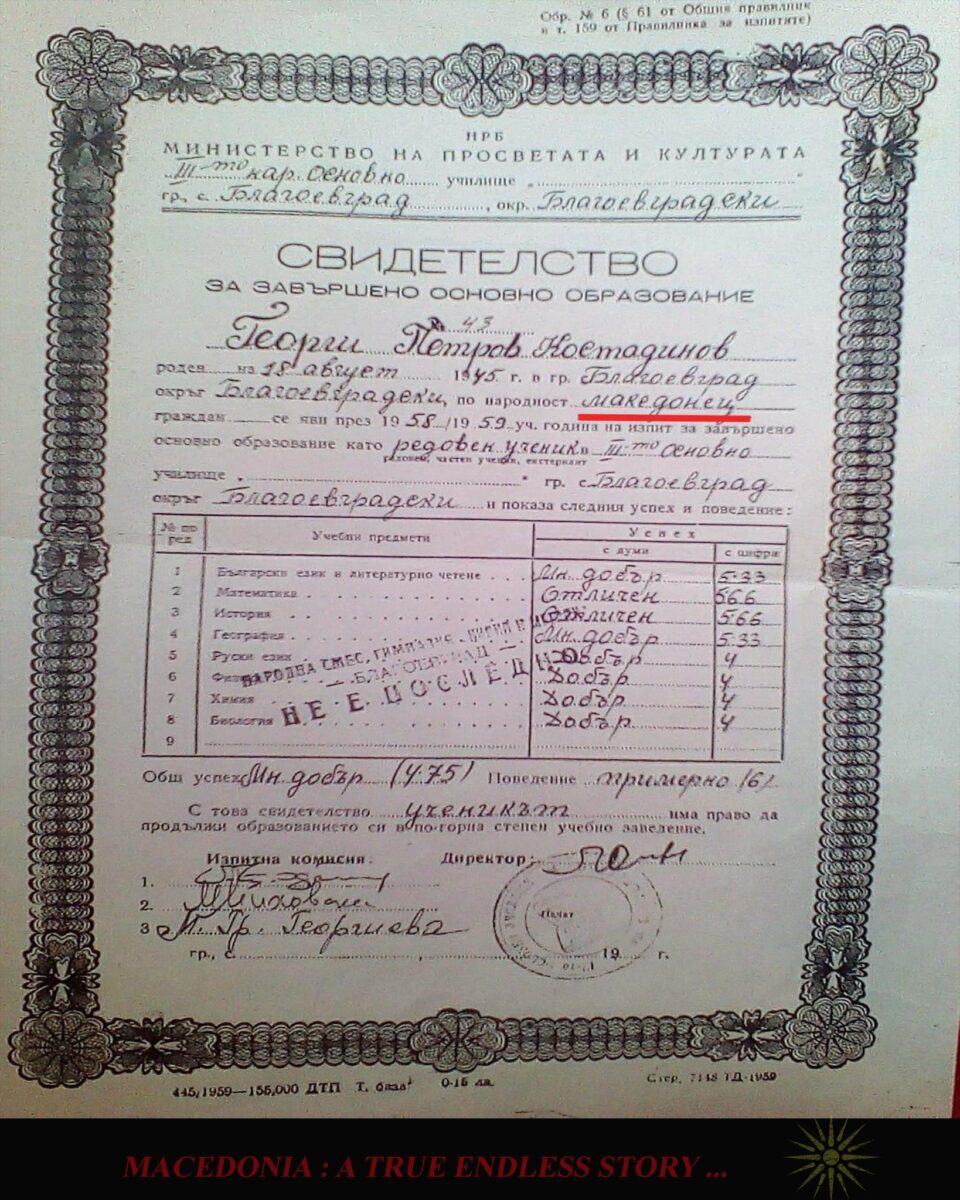 Обр. № 6 (§ 61 от Общия правилник
и т. 159 от Правилника за изпитите)
НРБ
МИНИСТЕРСТВО НА ПРОСВЕТАТА И КУЛТУРАТА
III-то нар. основно училище „ “
гр., с. Благоевград, окр. Благоевградски
СВИДЕТЕЛСТВО
ЗА ЗАВЪРШЕНО ОСНОВНО ОБРАЗОВАНИЕ
№ 43
Георги Петров Костадинов
роден на 18 август 1945 г. в гр. Благоевград
окръг Благоевградски, по народност македонец
граждан се яви през 1958/1959 уч. година на изпит за завършено
основно образование като редовен ученик в III-то основно
редовен, частен ученик, екстернант
училище „ “ гр. с. Благоевград
окръг Благоевградски и показа следния успех и поведение:
№ по ред Учебни предмети Успех
с думи с цифри
1 Български език и литературно четене Мн. добър 5·33
2 Математика Отличен 5·66
3 История Отличен 5·66
4 География Мн. добър 5·33
5 Руски език Добър 4
6 Физика Добър 4
7 Химия Добър 4
8 Биология Добър 4
9
НАРОДНА СМЕС. ГИМНАЗИЯ
— БЛАГОЕВГРАД —
Общ успех Мн. добър (4·75) Поведение примерно (6)
С това свидетелство ученикът има право да
продължи образованието си в по-горна степен учебно заведение.
Изпитна комисия: Директор:
1.
2.
3 П. Гр. Георгиева
Печат
гр., с. , 19 г.
445/1959—155,000 ДТП Т. база 0·15 лв. Стер. 7148 ТД-1959
MACEDONIA : A TRUE ENDLESS STORY ...